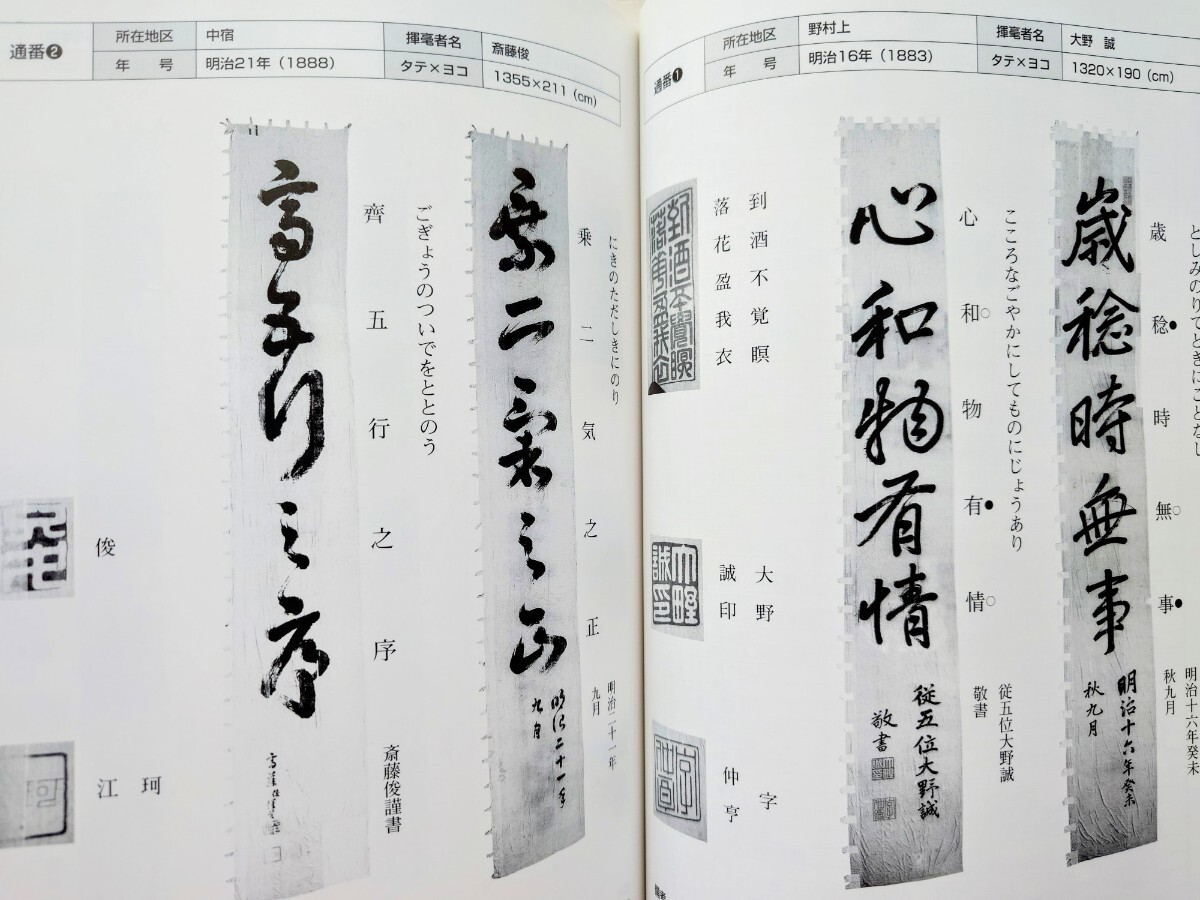 通番❶
所在地区 野村上
揮毫者名 大野 誠
年 号 明治16年（1883）
タテ×ヨコ 1320×190（cm）
としみのりてときにことなし
歳稔●時無○事●
明治十六年癸未
秋九月
歳稔時無事
明治十六年癸未
秋九月
こころなごやかにしてものにじょうあり
心和○物有●情○
従五位大野誠
敬書
心和物有情
従五位大野誠
敬書
到酒不覚瞑
落花盈我衣
大野
誠印
字
仲亨
通番❷
所在地区 中宿
揮毫者名 斎藤俊
年 号 明治21年（1888）
タテ×ヨコ 1355×211（cm）
にきのただしきにのり
乗二気之正
明治二十一年
九月
乗二氣之正
明治二十一年
九月
ごぎょうのついでをととのう
齊五行之序
斎藤俊謹書
齊五行之序
俊
珂
江